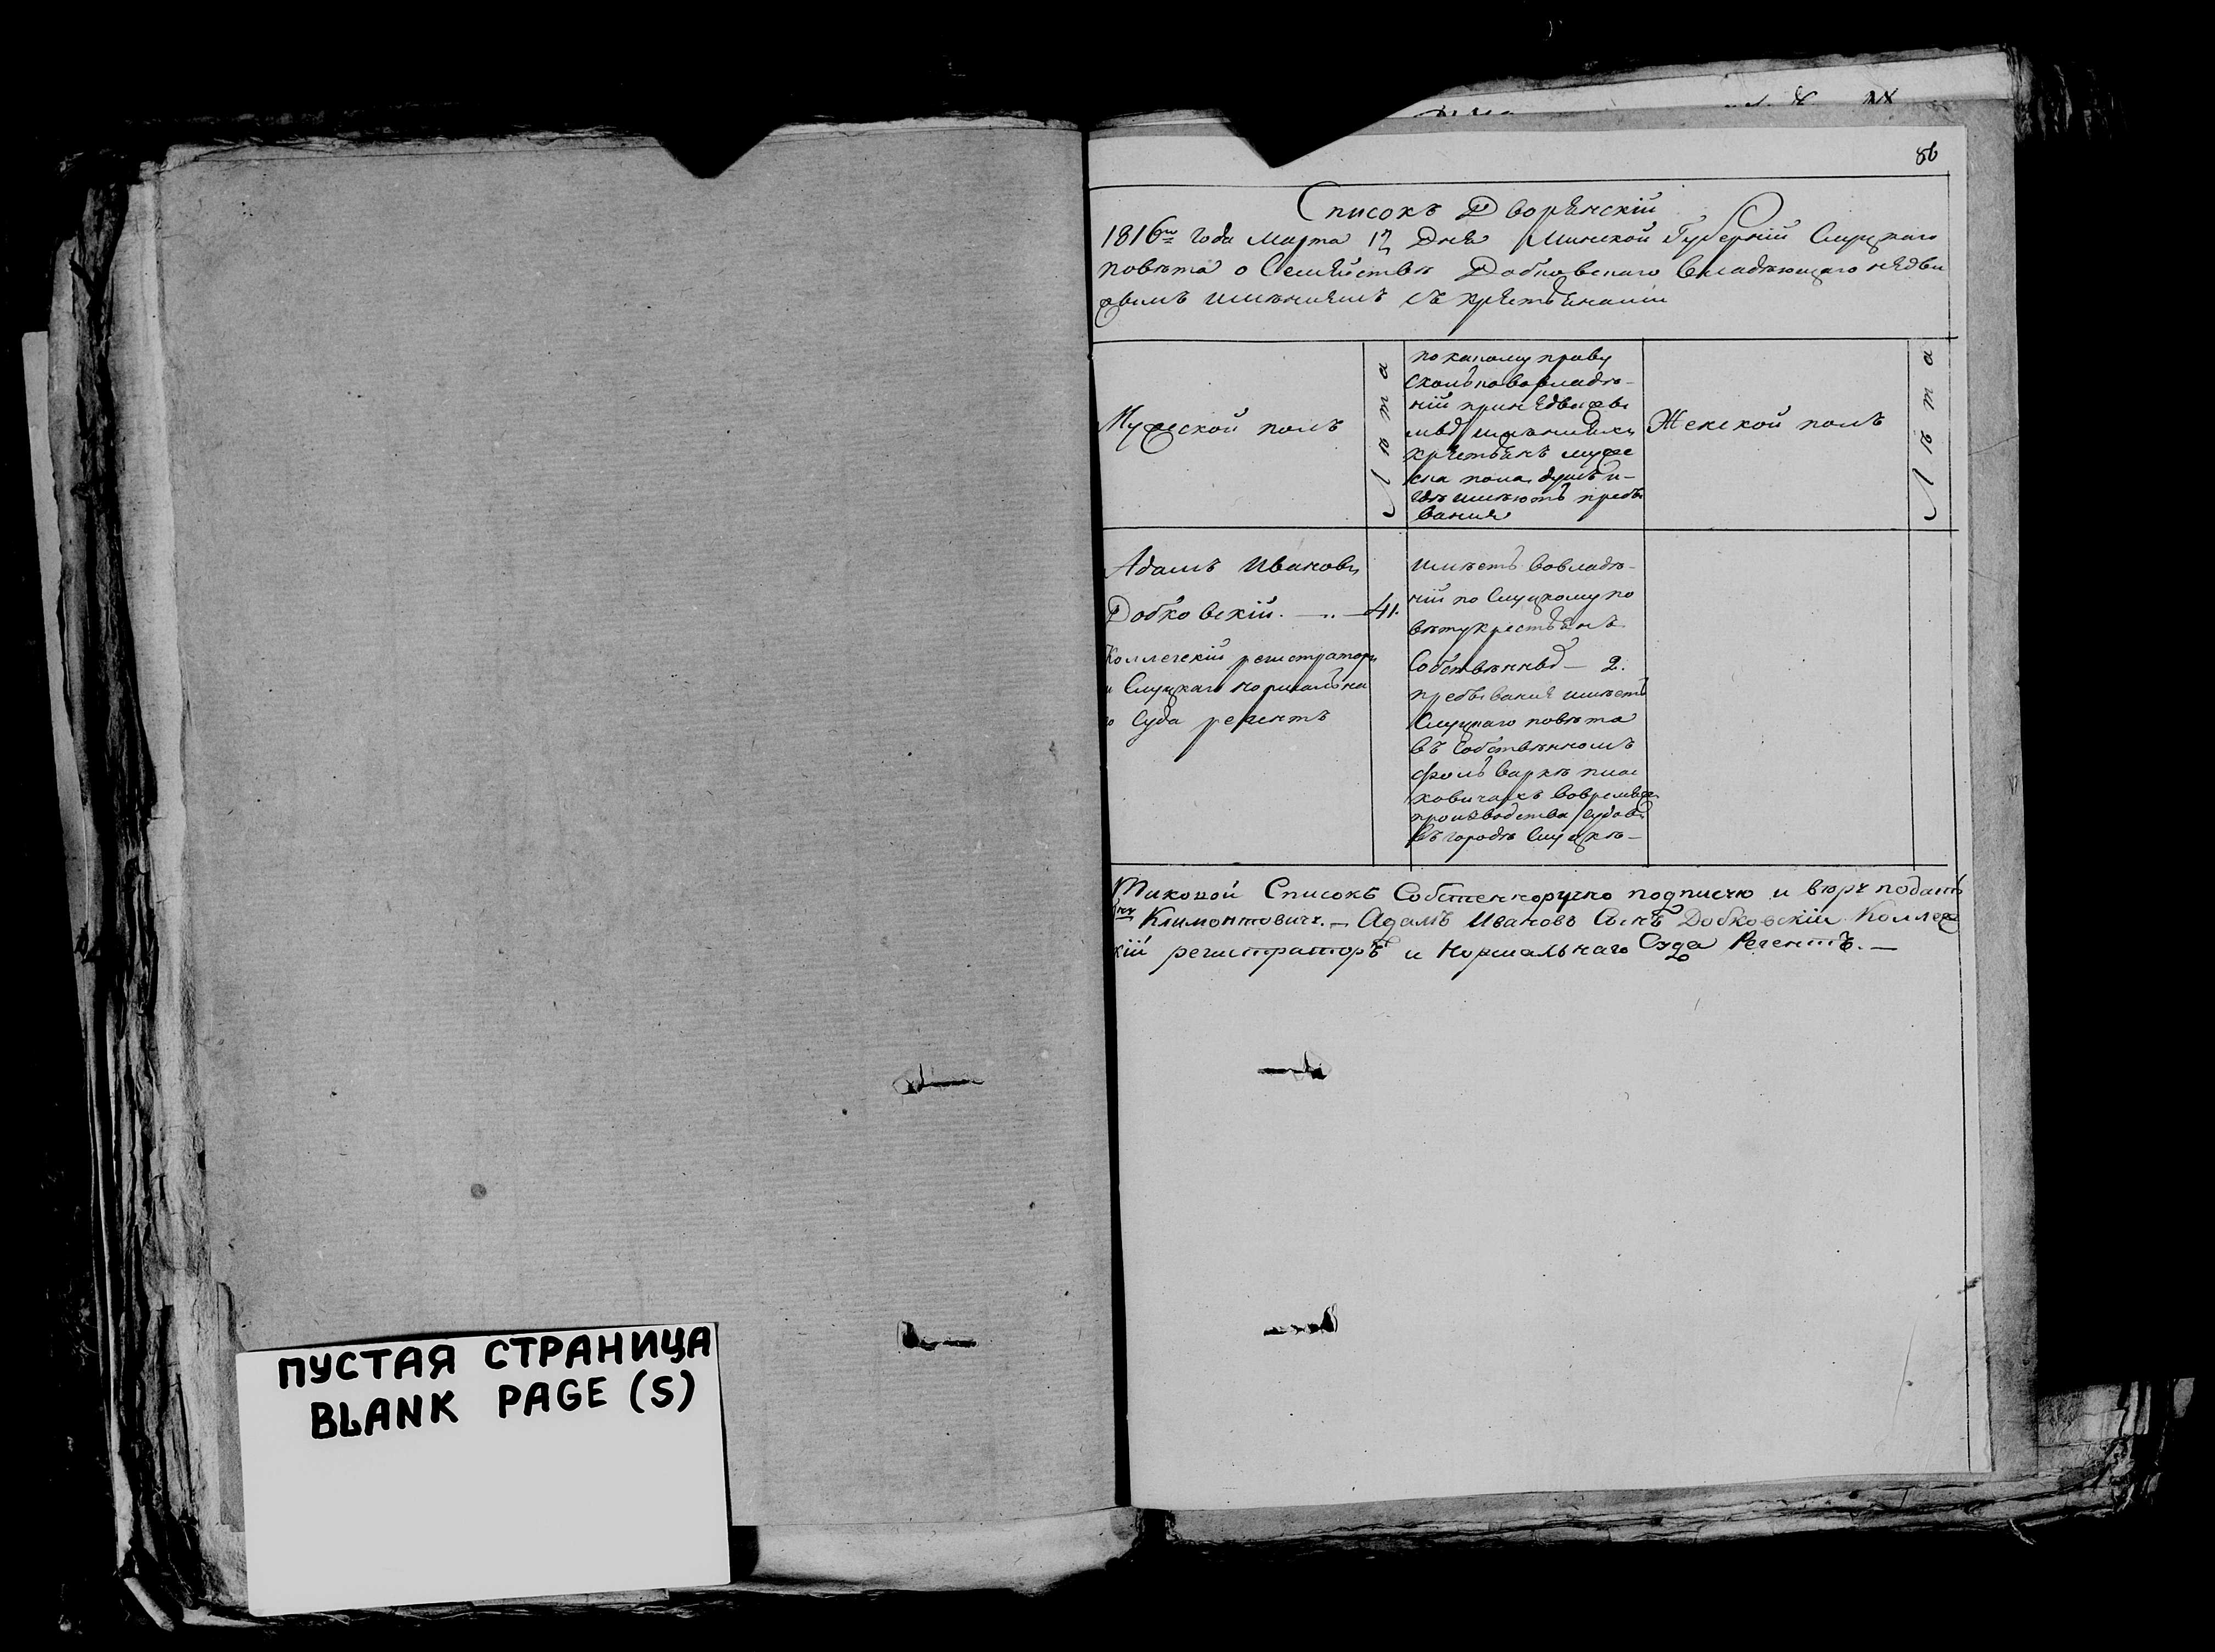 86
Списокъ Дворянскій
1816го года Марта 17 Дня Минской Губерніи Слуцкаго
повѣта о Семействѣ Добковскаго владѣющаго недви
жимъ имѣниемъ съ крестьянами
Мужеской полъ
Лѣта
по какому праву
сколько во владѣ-
ніи при недвижи
мыхъ имѣнияхъ
крестьянъ муже
ска пола душъ и-
гдѣ имѣютъ пребы
вания
Женской полъ
Лѣта
Адамъ Ивановъ
Добковскій. — 41.
Коллегскій регистраторъ
и Слуцкаго нормально
го Суда регентъ
имѣетъ во владѣ-
ніи по Слуцкому по
вѣту крестьянъ
Собственныхъ — 2.
пребывание имѣетъ
Слуцкаго повѣта
въ собственномъ
фольваркѣ
во время
производства судовъ
въ городѣ Слуцкѣ —
Таковой Списокъ Собственноручно подписую и подалъ
Климонтовичъ. — Адамъ Ивановъ Сынъ Добковскій Коллеж
кій регистраторъ и Нормальнаго Суда Регентъ. —
ПУСТАЯ СТРАНИЦА
BLANK PAGE (S)